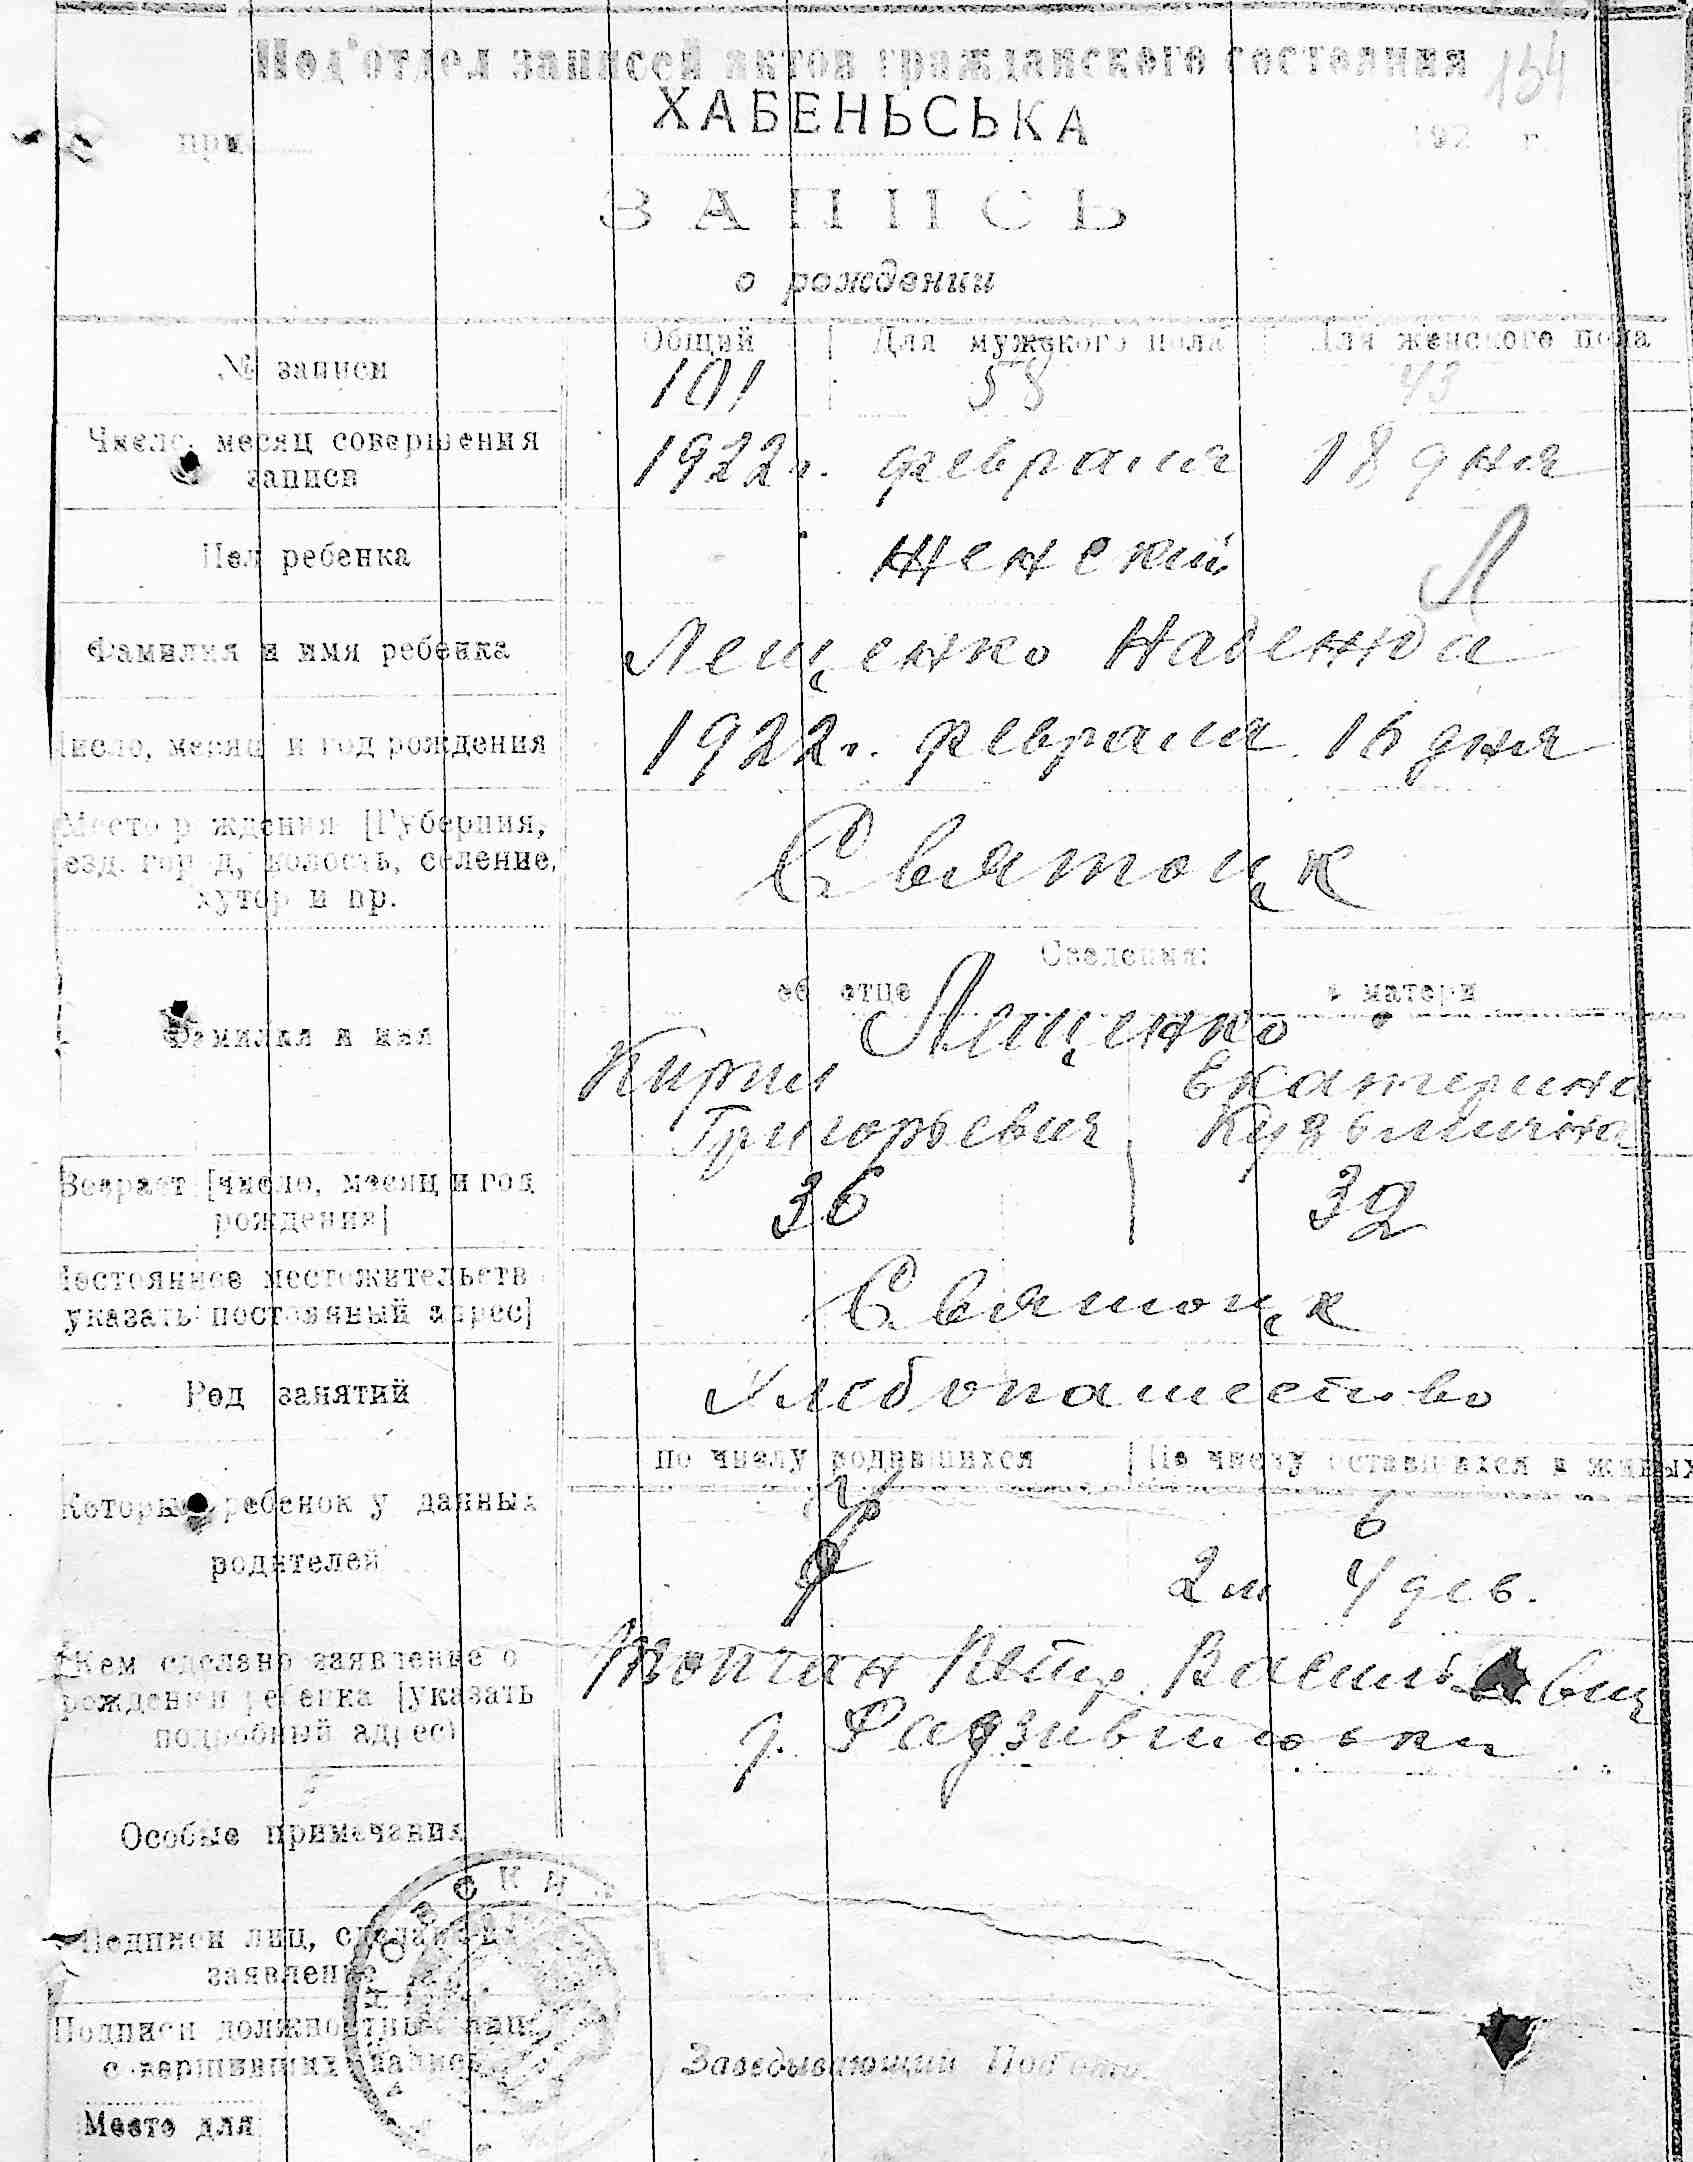 Под'отдел записей актов гражданского состояния 154
ХАБЕНЬСЬКА
при 192 г.
ЗАПИСЬ
о рождении
Общий Для мужского пола Для женского пола
№ записи 101 58 43
Число, месяц совершения
записи
1922 г. февраля 18 дня
Пол ребенка женский
Л
Фамилия и имя ребенка Лещенко Надежда
Число, месяц и год рождения 1922 г. февраля 16 дня
Место рождения [Губерния,
уезд, город, волость, селение,
хутор и пр.
Святоцк
Сведения:
об отце о матери
Фамилия и имя
Лещенко
Кирил Екатерина
Григорьевич Кузьминична
Возраст [число, месяц и год
рождения]
36 32
Постоянное местожительств
указать постоянный адрес]
Святоцк
Род занятий Хлебопашество
по числу родившихся По числу оставшихся в живых
Который ребенок у данных
родителей
6
2 м 4 дев.
Кем сделано заявление о
рождении ребенка [указать
подробный адрес]
Петр Васильевич
Особые примечания
Подписи лиц, сделавших
заявление
Подписи должностных лиц,
совершивших запись
Заведывающий Под'отд.
Место для